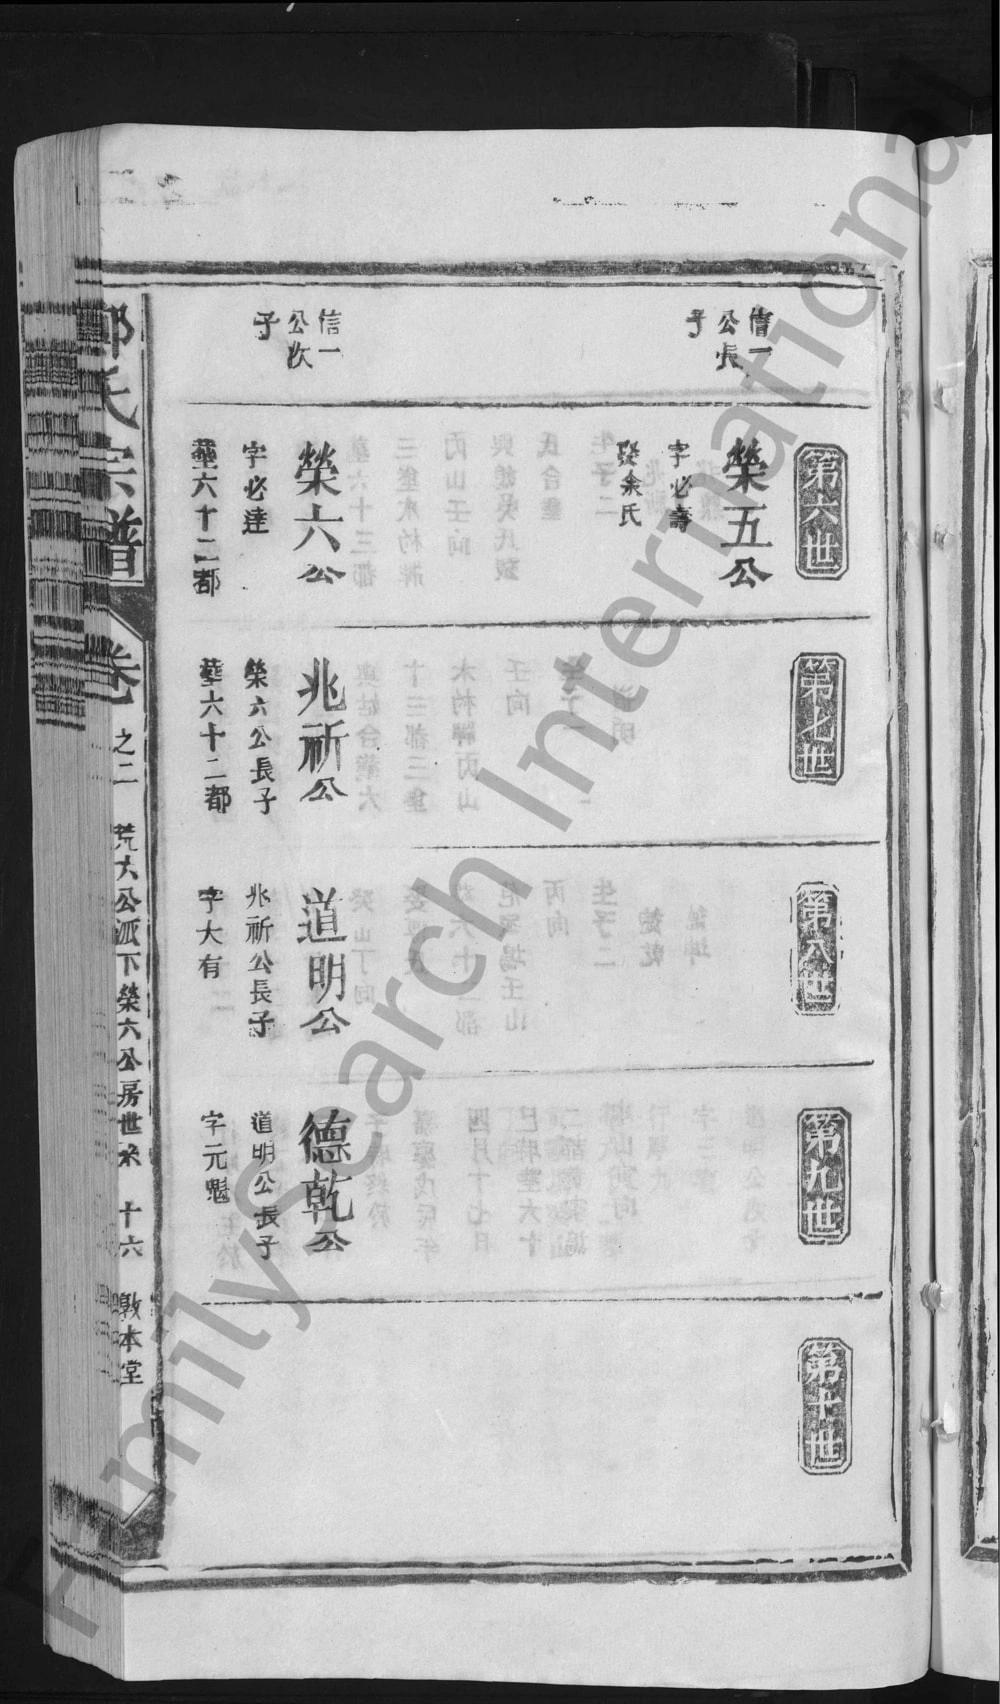 第六世
第七世
第八世
第九世
第十世
信一
公長
子
榮五公
字必壽
娶余氏
信一
公次
子
榮六公
字必達
葬六十二都
兆祈公
榮六公長子
葬六十二都
道明公
兆祈公長子
字大有
德乾公
道明公長子
字元魁
氏宗譜
卷之二
荒大公派下榮六公房世系
十六
敦本堂
FamilySearch International